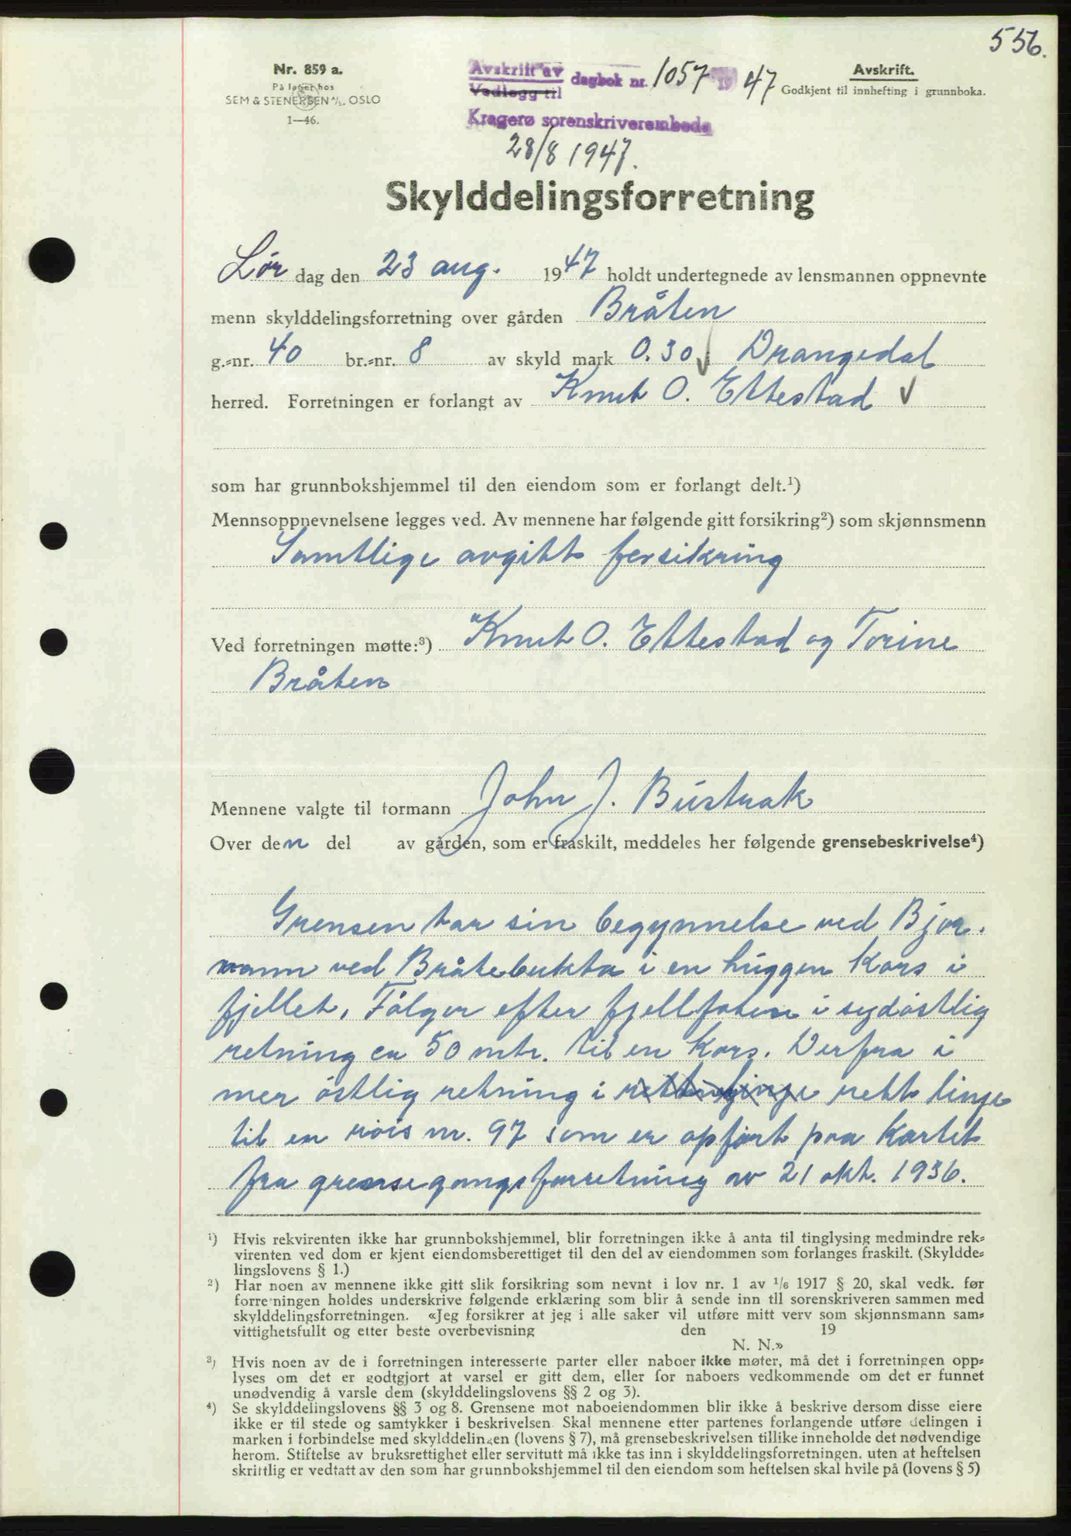 556.
Nr. 859 a.
På lager hos
SEM & STENERSEN A/S. OSLO
1—46.
Avskrift av dagbok nr. 1057 1947
Vedlegg til
Kragerø sorenskriverembede
28/8 1947.
Avskrift.
Godkjent til innhefting i grunnboka.
Skylddelingsforretning
Lør dag den 23 aug. 1947 holdt undertegnede av lensmannen oppnevnte
menn skylddelingsforretning over gården Bråten
g.-nr. 40 br.-nr. 8 av skyld mark 0.30 Drangedal
herred. Forretningen er forlangt av Knut O. Ettestad
som har grunnbokshjemmel til den eiendom som er forlangt delt.¹)
Mennsoppnevnelsene legges ved. Av mennene har følgende gitt forsikring²) som skjønnsmenn
Samtlige avgitt forsikring
Ved forretningen møtte:³) Knut O. Ettestad og Torine
Bråten
Mennene valgte til formann John J. Bustrak
Over den del av gården, som er fraskilt, meddeles her følgende grensebeskrivelse⁴)
Grensen tar sin begynnelse ved Bjor.
vann ved Bråtebukta i en huggen Kors i
fjellet. Følger efter fjellfoten i sydøstlig
retning ca 50 mtr. til en Kors. Derfra i
mer østlig retning i rett linje
til en røis nr. 97 som er opført paa Kartet
fra grensegangsforretning av 21 okt. 1936.
¹) Hvis rekvirenten ikke har grunnbokshjemmel, blir forretningen ikke å anta til tinglysing medmindre rek-
virenten ved dom er kjent eiendomsberettiget til den del av eiendommen som forlanges fraskilt. (Skyldde-
lingslovens § 1.)
²) Har noen av mennene ikke gitt slik forsikring som nevnt i lov nr. 1 av 1/6 1917 § 20, skal vedk. før
forretningen holdes underskrive følgende erklæring som blir å sende inn til sorenskriveren sammen med
skylddelingsforretningen. «Jeg forsikrer at jeg i alle saker vil utføre mitt verv som skjønnsmann sam-
vittighetsfullt og etter beste overbevisning den 19
N. N.»
³) Hvis noen av de i forretningen interesserte parter eller naboer ikke møter, må det i forretningen opp-
lyses om det er godtgjort at varsel er gitt dem, eller for naboers vedkommende om det er funnet
unødvendig å varsle dem (skylddelingslovens §§ 2 og 3).
⁴) Se skylddelingslovens §§ 3 og 8. Grensene mot naboeiendommen blir ikke å beskrive dersom disse eiere
ikke er til stede og samtykker i beskrivelsen. Skal mennene etter partenes forlangende utføre delingen i
marken i forbindelse med skylddelingen (lovens § 7), må grensebeskrivelsen tillike inneholde det nødvendige
herom. Stiftelse av bruksrettighet eller servitutt må ikke tas inn i skylddelingsforretningen, uten at heftelsen
skriftlig er vedtatt av den som har grunnbokshjemmel til den eiendom som heftelsen skal hvile på (lovens § 5)